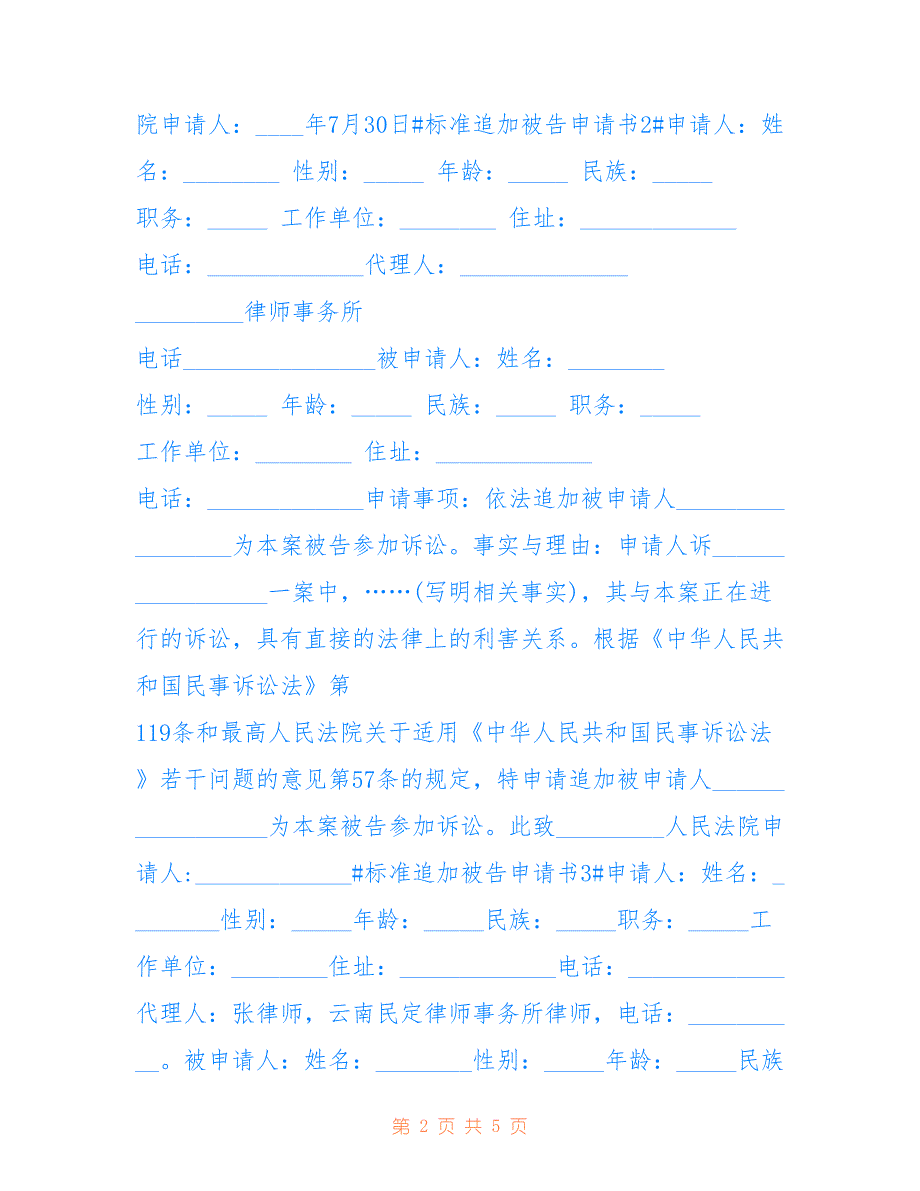 院申请人：____年7月30日#标准追加被告申请书2#申请人：姓
名：________ 性别：_____ 年龄：_____ 民族：_____
职务：_____ 工作单位：________ 住址：_____________
电话：_____________代理人：______________
_________律师事务所
电话________________被申请人：姓名：________
性别：_____ 年龄：_____ 民族：_____ 职务：_____
工作单位：________ 住址：_____________
电话：_____________申请事项：依法追加被申请人_________
________为本案被告参加诉讼。事实与理由：申请人诉______
___________一案中，……(写明相关事实)，其与本案正在进
行的诉讼，具有直接的法律上的利害关系。根据《中华人民共
和国民事诉讼法》第
119条和最高人民法院关于适用《中华人民共和国民事诉讼法
》若干问题的意见第57条的规定，特申请追加被申请人______
___________为本案被告参加诉讼。此致_________人民法院申
请人:_____________#标准追加被告申请书3#申请人：姓名：_
_______性别：_____年龄：_____民族：_____职务：_____工
作单位：________住址：_____________电话：_____________
代理人：张律师，云南民定律师事务所律师，电话：________
__。被申请人：姓名：________性别：_____年龄：_____民族
第 2 页 共 5 页